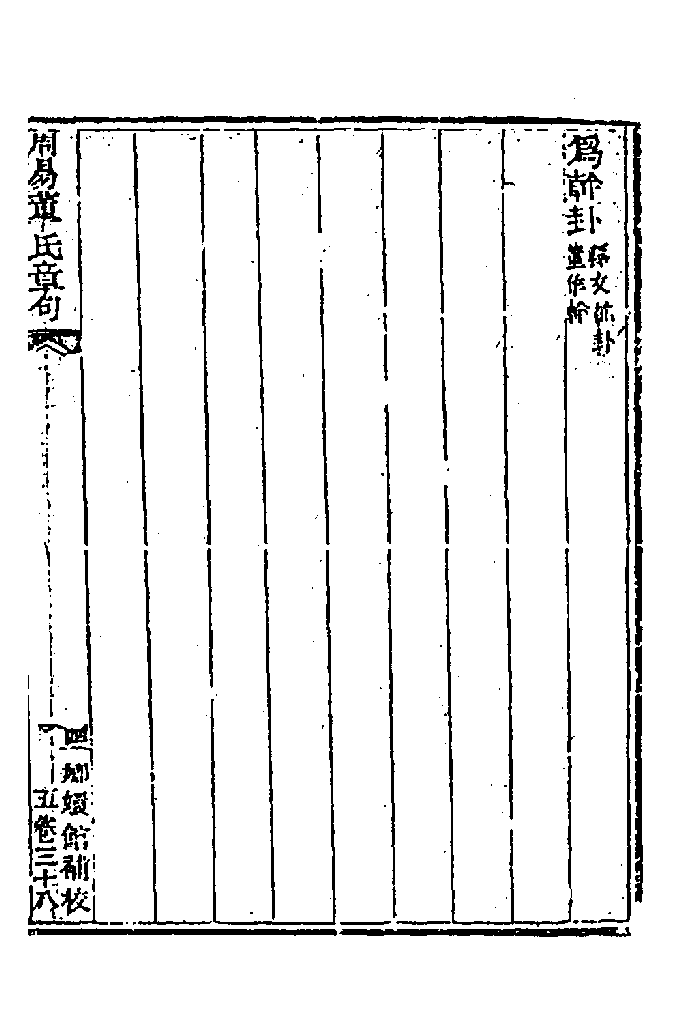 爲幹卦
釋文說卦
董作幹
周易董氏章句
四
嫏嬛館補校
五卷三十八